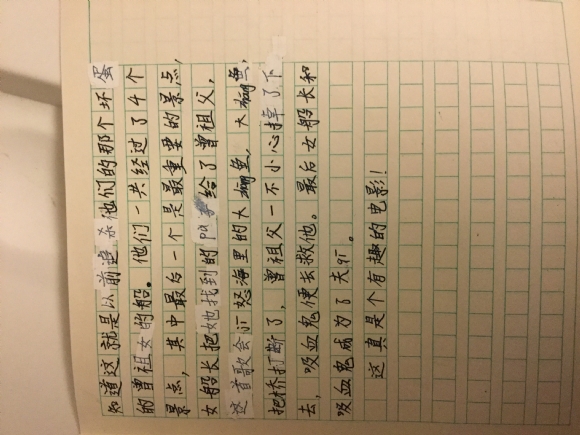 知道这就是以前追杀他们的那个坏蛋
的曾祖女的船。他们一共经过了4个
景点，其中最后一个是最重要的景点，
女船长把她找到的 给了曾祖父，
这首歌会 怒海里的大 鱼，大 鱼，
把桥打断了，曾祖父一不小心掉了下
去，吸血鬼便去救他。最后女船长和
吸血鬼成为了夫 。
这真是个有趣的电影！